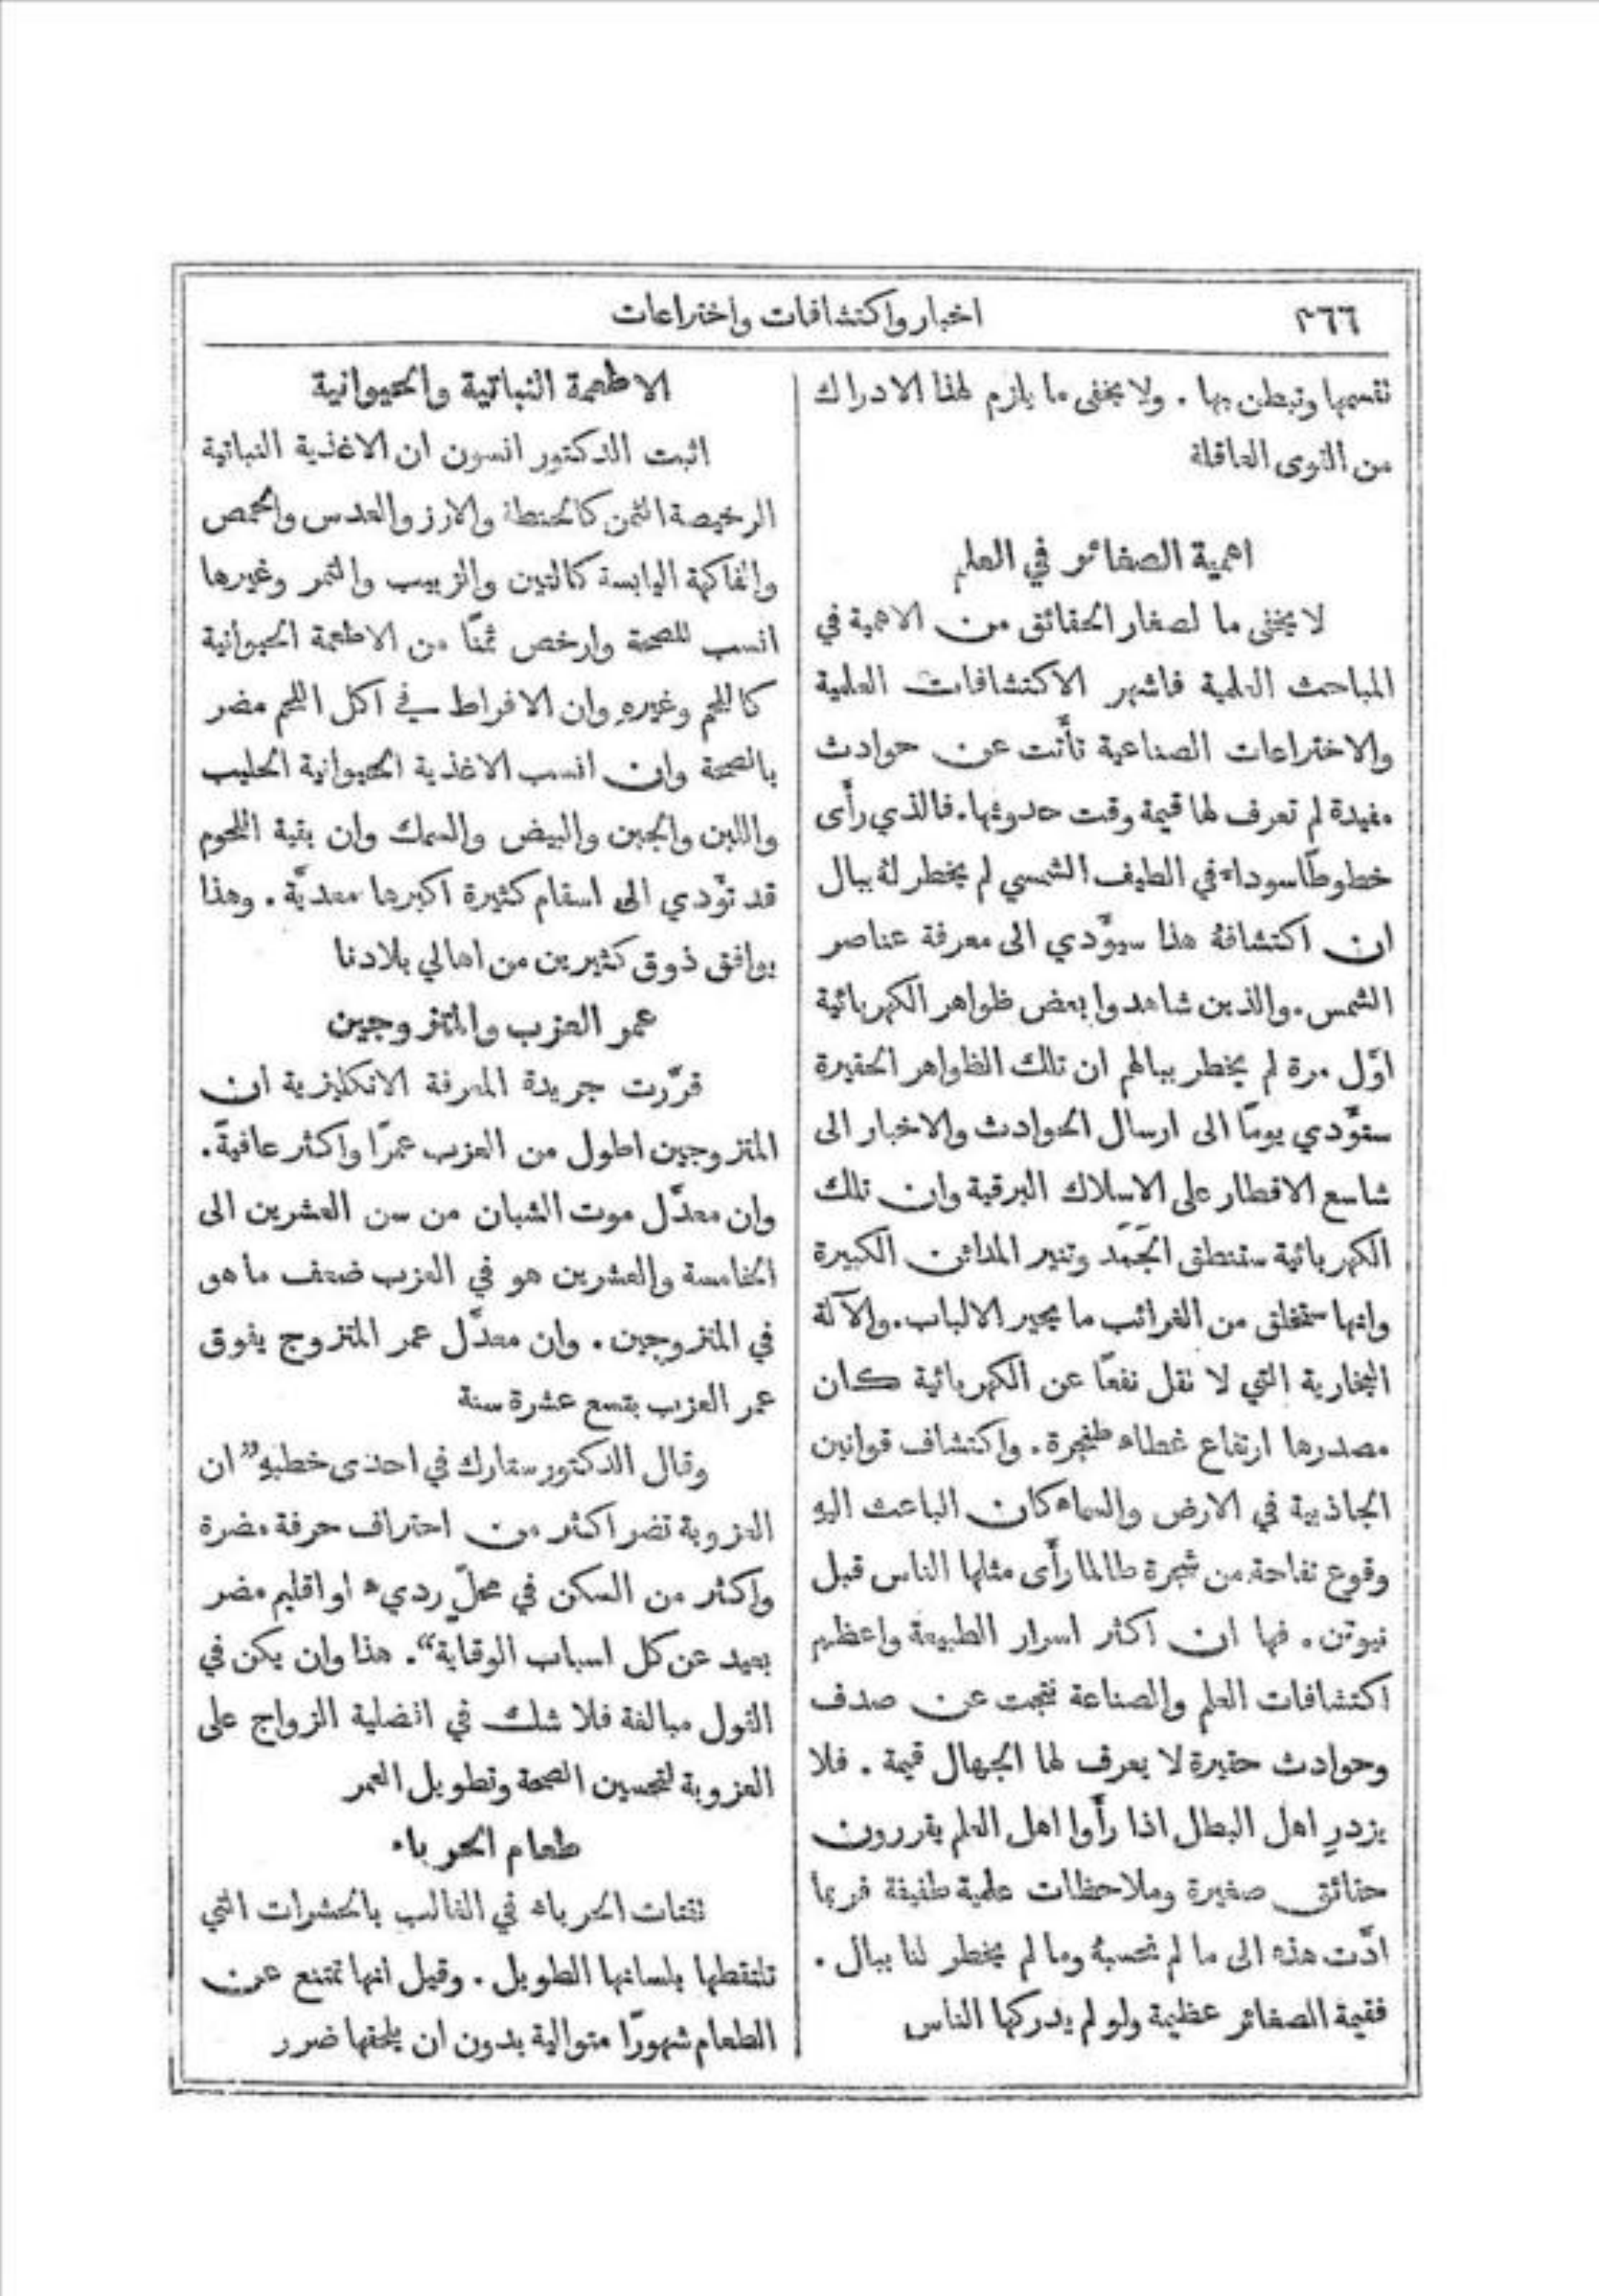 ٣٦٦
اخبار واكتشافات واختراعات
نقسمها وتبطن بها . ولا يخفى ما يلزم لهذا الادراك
من القوى العاقلة
اهمية الصغائر في العلم
لا يخفى ما لصغار الحقائق من الاهمية في
المباحث العلمية فاشهر الاكتشافات العلمية
والاختراعات الصناعية تأتت عن حوادث
مفيدة لم تعرف لها قيمة وقت حدوثها . فالذي رأى
خطوطًا سوداء في الطيف الشمسي لم يخطر لهُ ببال
ان اكتشافهُ هذا سيؤَدي الى معرفة عناصر
الشمس . والذين شاهدوا بعض ظواهر الكهربائية
اوَّل مرة لم يخطر ببالهم ان تلك الظواهر الحقيرة
ستؤَدي يومًا الى ارسال الحوادث والاخبار الى
شاسع الاقطار على الاسلاك البرقية وان تلك
الكهربائية ستنطق الجَمَد وتنير المدائن الكبيرة
وانها ستخلق من الغرائب ما يحير الالباب . والآلة
البخارية التي لا نقل نفعًا عن الكهربائية كان
مصدرها ارتفاع غطاء طنجرة . واكتشاف قوانين
الجاذبية في الارض والسماء كان الباعث اليهِ
وقوع تفاحة من شجرة طالما رأَى مثلها الناس قبل
نيوتن . فبما ان اكثر اسرار الطبيعة واعظم
اكتشافات العلم والصناعة نتجت عن صدف
وحوادث حقيرة لا يعرف لها الجهال قيمة . فلا
يزدرِ اهل البطل اذا رأَوا اهل العلم يقررون
حقائق صغيرة وملاحظات علمية طفيفة فربما
ادَّت هذه الى ما لم نحسبهُ وما لم يخطر لنا ببال .
فقيمة الصغائر عظيمة ولو لم يدركها الناس
الاطعمة النباتية والحيوانية
اثبت الدكتور انسون ان الاغذية النباتية
الرخيصة الثمن كالحنطة والارز والعدس والحمص
والفاكهة اليابسة كالتين والزبيب والتمر وغيرها
انسب للصحة وارخص ثمنًا من الاطعمة الحيوانية
كاللحم وغيرهِ وان الافراط في اكل اللحم مضر
بالصحة وان انسب الاغذية الحيوانية الحليب
واللبن والجبن والبيض والسمك وان بقية اللحوم
قد تؤَدي الى اسقام كثيرة اكبرها معديَّة . وهذا
يوافق ذوق كثيرين من اهالي بلادنا
عمر العزب والمتزوجين
قرَّرت جريدة المعرفة الانكليزية ان
المتزوجين اطول من العزب عمرًا واكثر عافيةً .
وان معدَّل موت الشبان من سن العشرين الى
الخامسة والعشرين هو في العزب ضعف ما هو
في المتزوجين . وان معدَّل عمر المتزوج يفوق
عمر العزب بتسع عشرة سنة
وقال الدكتور ستارك في احدى خطبهِ ”ان
العزوبة تضر اكثر من احتراف حرفة مضرة
واكثر من السكن في محلّ رديء او اقليم مضر
بعيد عن كل اسباب الوقاية“ . هذا وان يكن في
القول مبالغة فلا شك في افضلية الزواج على
العزوبة لتحسين الصحة وتطويل العمر
طعام الحرباء
تقتات الحرباء في الغالب بالحشرات التي
تلتقطها بلسانها الطويل . وقيل انها تمتنع عن
الطعام شهورًا متوالية بدون ان يلحقها ضرر